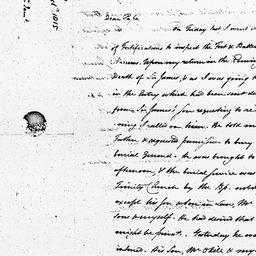 1815
Dear Papa
On Friday last I went
of Fortifications to inspect the Fort & Batte
upon my return in the Evening
Death of Sir James, & as I was going t
in the Entry which had been sent do
from Sir James' Son requesting to se
ning I called on him. He told m
Father, & requested permission to bury
burial Ground. He was brought to
afternoon, & the burial Service was
Trinity Church by the Bp. nobo
except his Son & Son in Law, Mr
Sons & myself. He had desired that
might be private. Yesterday he wa
interred. His Son, Mr O'Kill & my